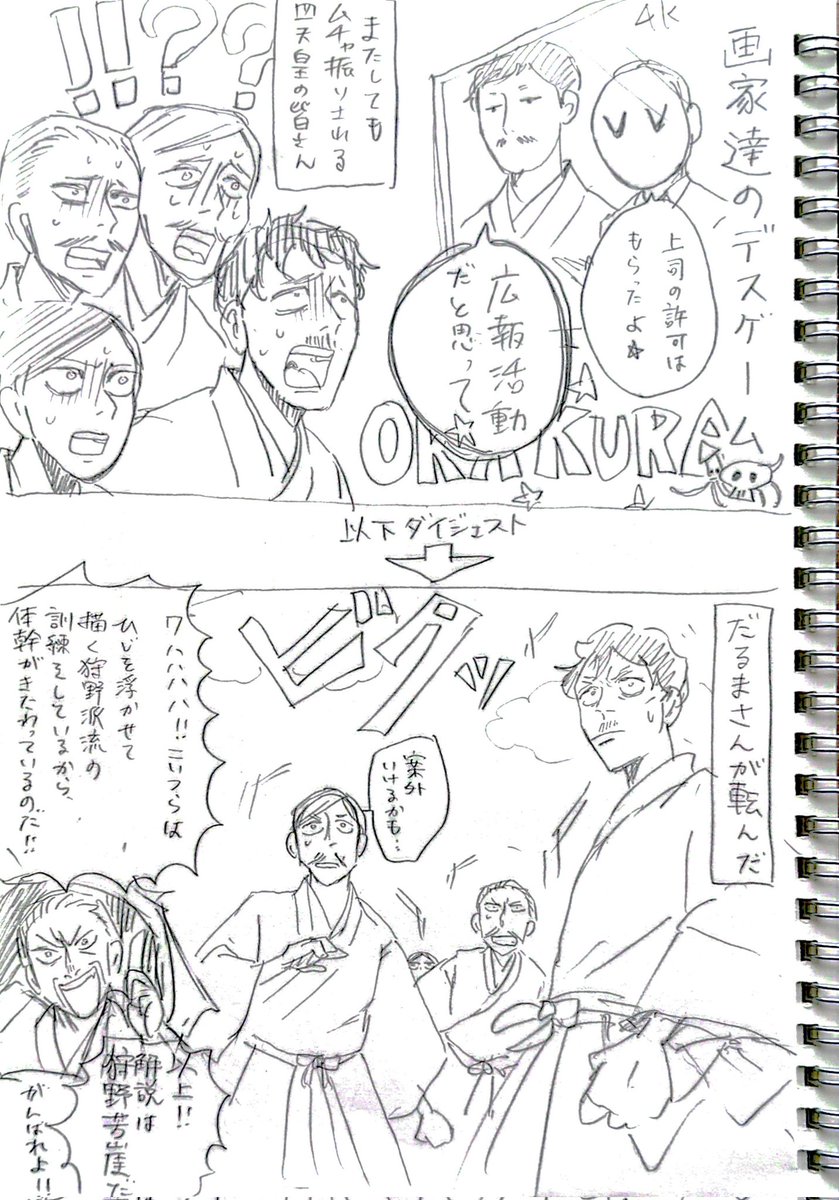 画家達のデスゲーム
4K
上司の許可は
もらったよ☆
広報活動
だと思って
またしても
ムチャ振りされる
四天皇の皆さん
!!??
OKAKURA
以下ダイジェスト
だるまさんが転んだ
ビクッ
案外
いけるかも…
ワハハハハ!!こいつらは
ひじを浮かせて
描く狩野派流の
訓練をしているから、
体幹がきたわっているのだ!!
以上!!
解説は
狩野芳崖だ
がんばれよ!!